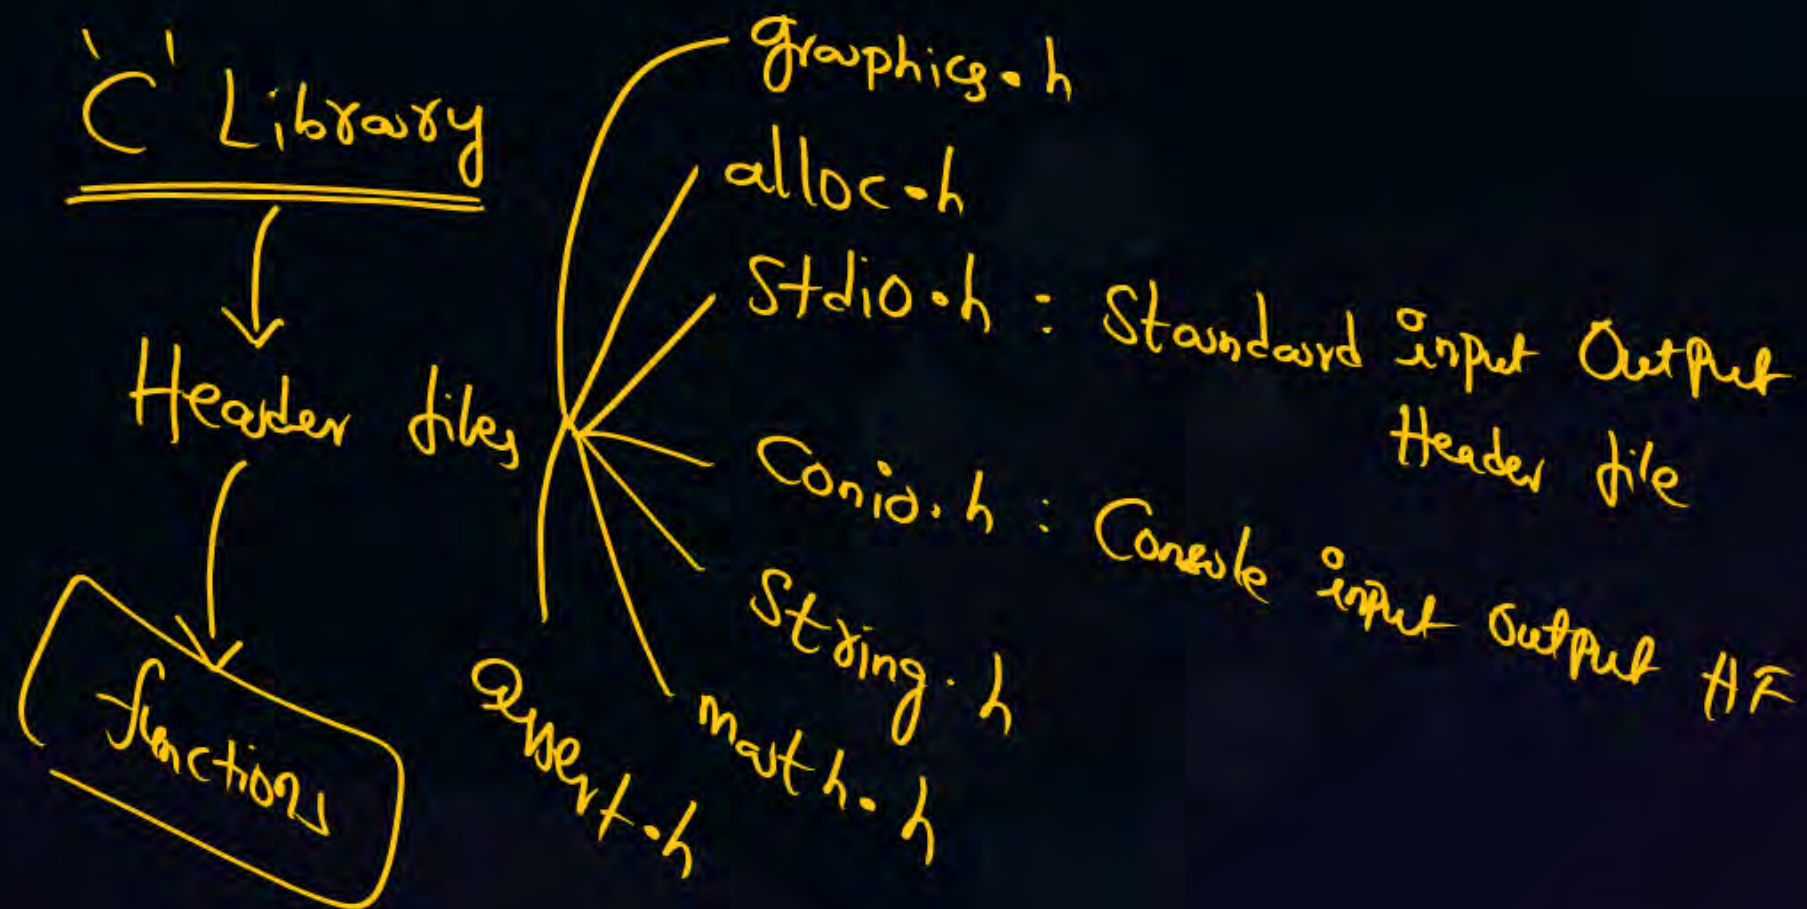 'C' Library
Header files
functions
graphics.h
alloc.h
Stdio.h : Standard input Output
Header file
Conio.h : Console input output HF
String.h
math.h
assert.h